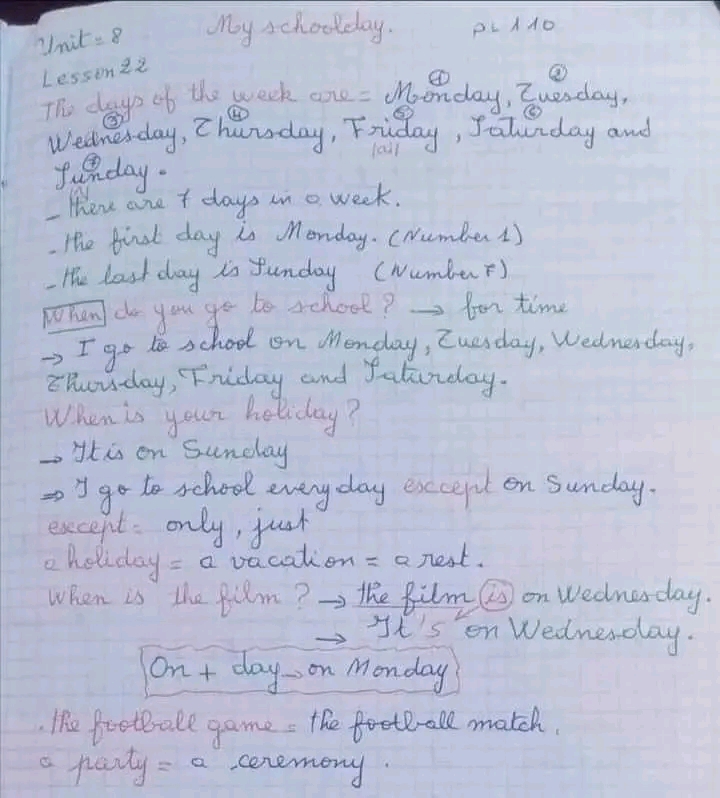 My schoolday. PL 110
Unit = 8
Lesson 22
The days of the week are = Monday, Tuesday,
① ②
Wednesday, Thursday, Friday, Saturday and
③ ④ ⑤ ⑥
/aɪ/
Sunday.
⑦
/ʌ/
- there are 7 days in a week.
- the first day is Monday. (Number 1)
- the last day is Sunday (Number 7)
When do you go to school? → for time
→ I go to school on Monday, Tuesday, Wednesday,
Thursday, Friday and Saturday.
When is your holiday?
→ It is on Sunday
⇒ I go to school every day exccept on Sunday.
exccept = only, just
a holiday = a vacation = a rest.
When is the film? → the film is on Wednesday.
→ It's on Wednesday.
On + day → on Monday
. the football game = the football match.
a party = a ceremony.